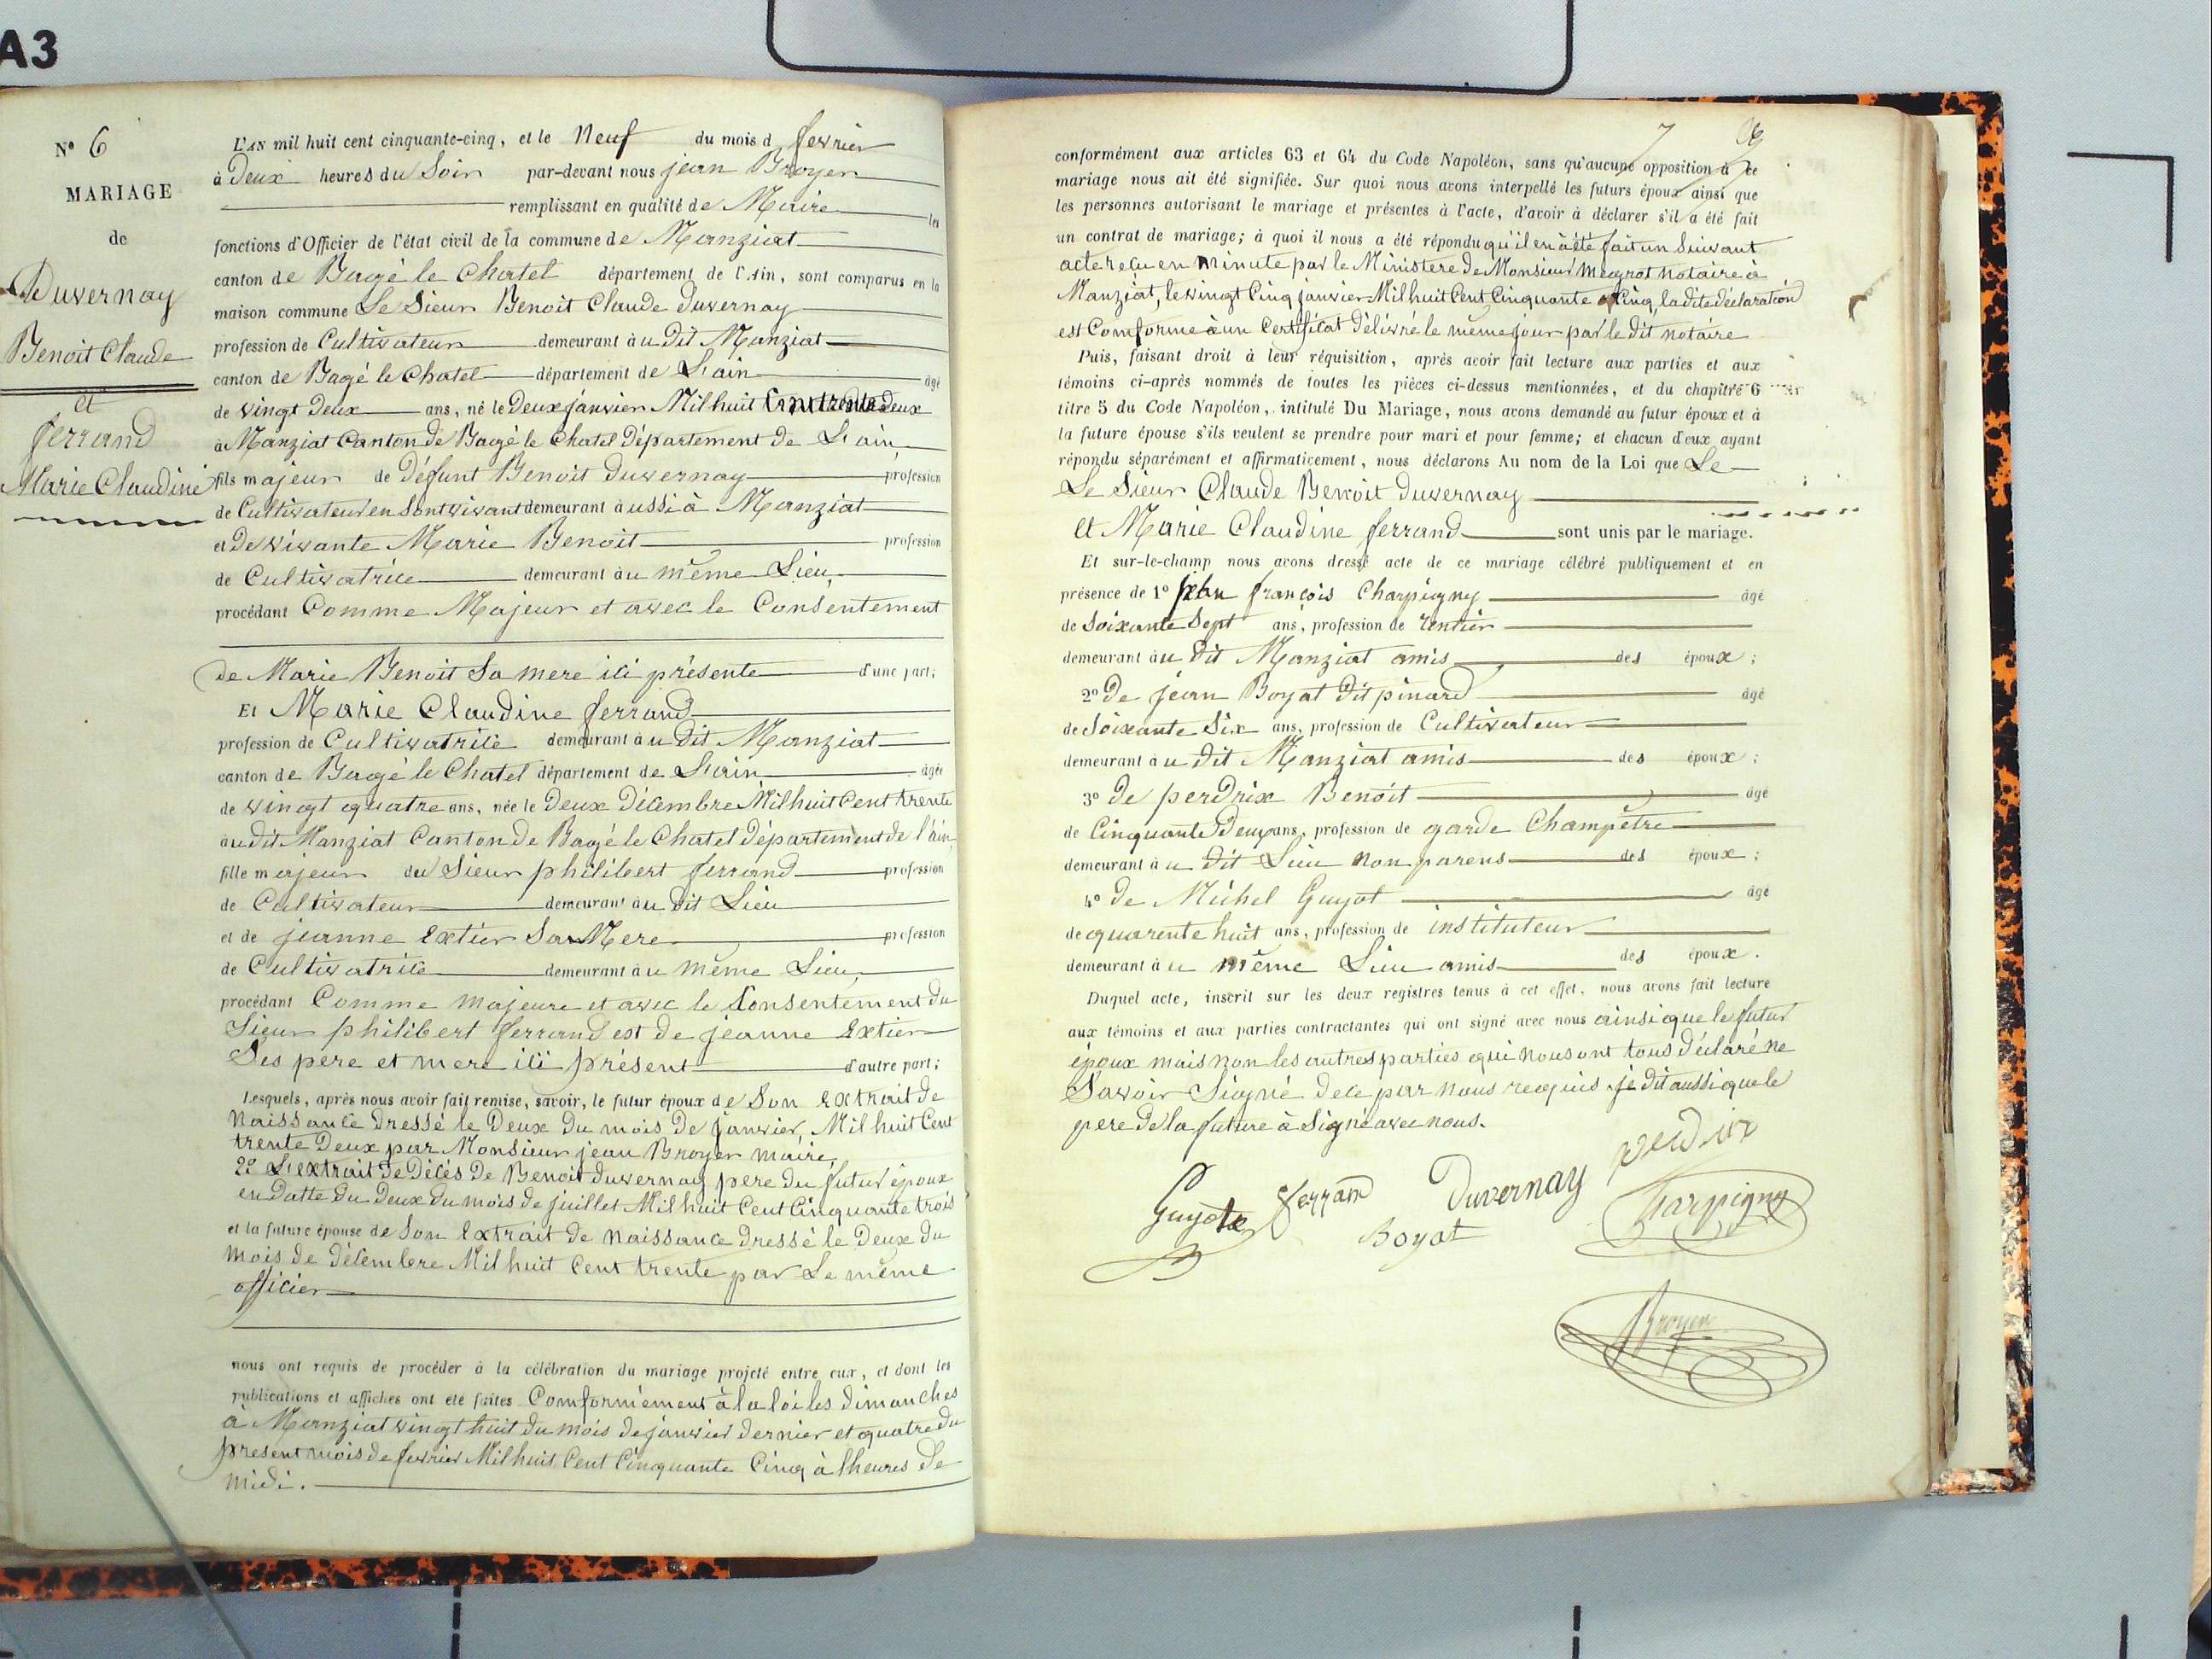 A3
N° 6
MARIAGE
de
Duvernay
Benoit Claude
et
ferrand
Marie Claudine
L'AN mil huit cent cinquante-cinq, et le Neuf du mois d fevrier
à Deux heures du Soir par-devant nous jean Broyer
remplissant en qualité de Maire les
fonctions d'Officier de l'état civil de la commune de Manziat
canton de Bagé le Chatel département de l'Ain, sont comparus en la
maison commune Le Sieur Benoit Claude Duvernay
profession de Cultivateur demeurant au Dit Manziat
canton de Bagé le Chatel département de L'ain âgé
de vingt Deux ans, né le Deux janvier Mil huit Cent trente deux
à Manziat Canton de Bagé le Chatel Département de L'ain
fils majeur de Défunt Benoit Duvernay profession
de Cultivateur en Sont vivant demeurant aussi à Manziat
et De vivante Marie Benoit profession
de Cultivatrice demeurant au même Lieu,
procédant Comme Majeur et avec le Consentement
de Marie Benoit Sa mere ici présente d'une part;
Et Marie Claudine ferrand
profession de Cultivatrice demeurant au Dit Manziat
canton de Bagé le Chatel département de L'ain âgée
de vingt quatre ans, née le Deux Décembre Mil huit Cent trente
au dit Manziat Canton de Bagé le Chatel Département de l'ain
fille majeur du Sieur philibert ferrand profession
de Cultivateur demeurant au Dit Lieu
et de jeanne Extier Sa Mere profession
de Cultivatrice demeurant au même Lieu,
procédant Comme majeure et avec le Consentement du
Sieur philibert ferrand est de jeanne Extier
Ses pere et mere ici présent d'autre part;
Lesquels, après nous avoir fait remise, savoir, le futur époux de Son Extrait de
Naissance Dressé le Deux Du mois De janvier, Mil huit Cent
trente Deux par Monsieur jean Broyer maire,
2° L'extrait De Décés De Benoit Duvernay pere du futur époux
en Datte du Deux Du mois de juillet Mil huit Cent Cinquante trois
et la future épouse de Son Extrait de Naissance Dressé le Deux du
Mois de Décembre Mil huit Cent trente par Le même
officier
nous ont requis de procéder à la célébration du mariage projeté entre eux, et dont les
publications et affiches ont été faites Comformément à la loi les dimanches
à Manziat vingt huit du mois de janvier dernier et quatre du
present mois de fevrier Mil huit Cent Cinquante Cinq à lheures De
midi.
7
conformément aux articles 63 et 64 du Code Napoléon, sans qu'aucune opposition à ce
mariage nous ait été signifiée. Sur quoi nous avons interpellé les futurs époux ainsi que
les personnes autorisant le mariage et présentes à l'acte, d'avoir à déclarer s'il a été fait
un contrat de mariage; à quoi il nous a été répondu qu'il en à été fait un Suivant
acte reçu en Minute par le Ministere De Monsieur Meyrot notaire à
Manziat, le vingt Cinq janvier Mil huit Cent Cinquante Cinq, la dite déclaration
est Comforme à un Certificat Délivré le même jour par le dit notaire
Puis, faisant droit à leur réquisition, après avoir fait lecture aux parties et aux
témoins ci-après nommés de toutes les pièces ci-dessus mentionnées, et du chapitre 6
titre 5 du Code Napoléon, intitulé Du Mariage, nous avons demandé au futur époux et à
la future épouse s'ils veulent se prendre pour mari et pour femme; et chacun d'eux ayant
répondu séparément et affirmativement, nous déclarons Au nom de la Loi que Le
Le Sieur Claude Benoit Duvernay
Et Marie Claudine ferrand sont unis par le mariage.
Et sur-le-champ nous avons dressé acte de ce mariage célébré publiquement et en
présence de 1° jean françois Charpigny âgé
de Soixante Sept ans, profession de rentier
demeurant au Dit Manziat amis des époux;
2° De jean Boyat Dit pinard âgé
de Soixante Six ans, profession de Cultivateur
demeurant au Dit Manziat amis des époux;
3° de perdrix Benoit âgé
de Cinquante Deux ans, profession de garde Champêtre
demeurant au Dit Lieu non parens des époux;
4° de Michel Guyot âgé
de quarente huit ans, profession de instituteur
demeurant au même Lieu amis des époux.
Duquel acte, inscrit sur les deux registres tenus à cet effet, nous avons fait lecture
aux témoins et aux parties contractantes qui ont signé avec nous ainsi que le futur
époux mais non les autres parties qui nous ont tous Déclaré ne
Savoir Signé De ce par nous requis. je Dit aussi que le
pere De la future à Signé avec nous.
perdrix
Guyot ferrand Duvernay Charpigny
Boyat
Broyer